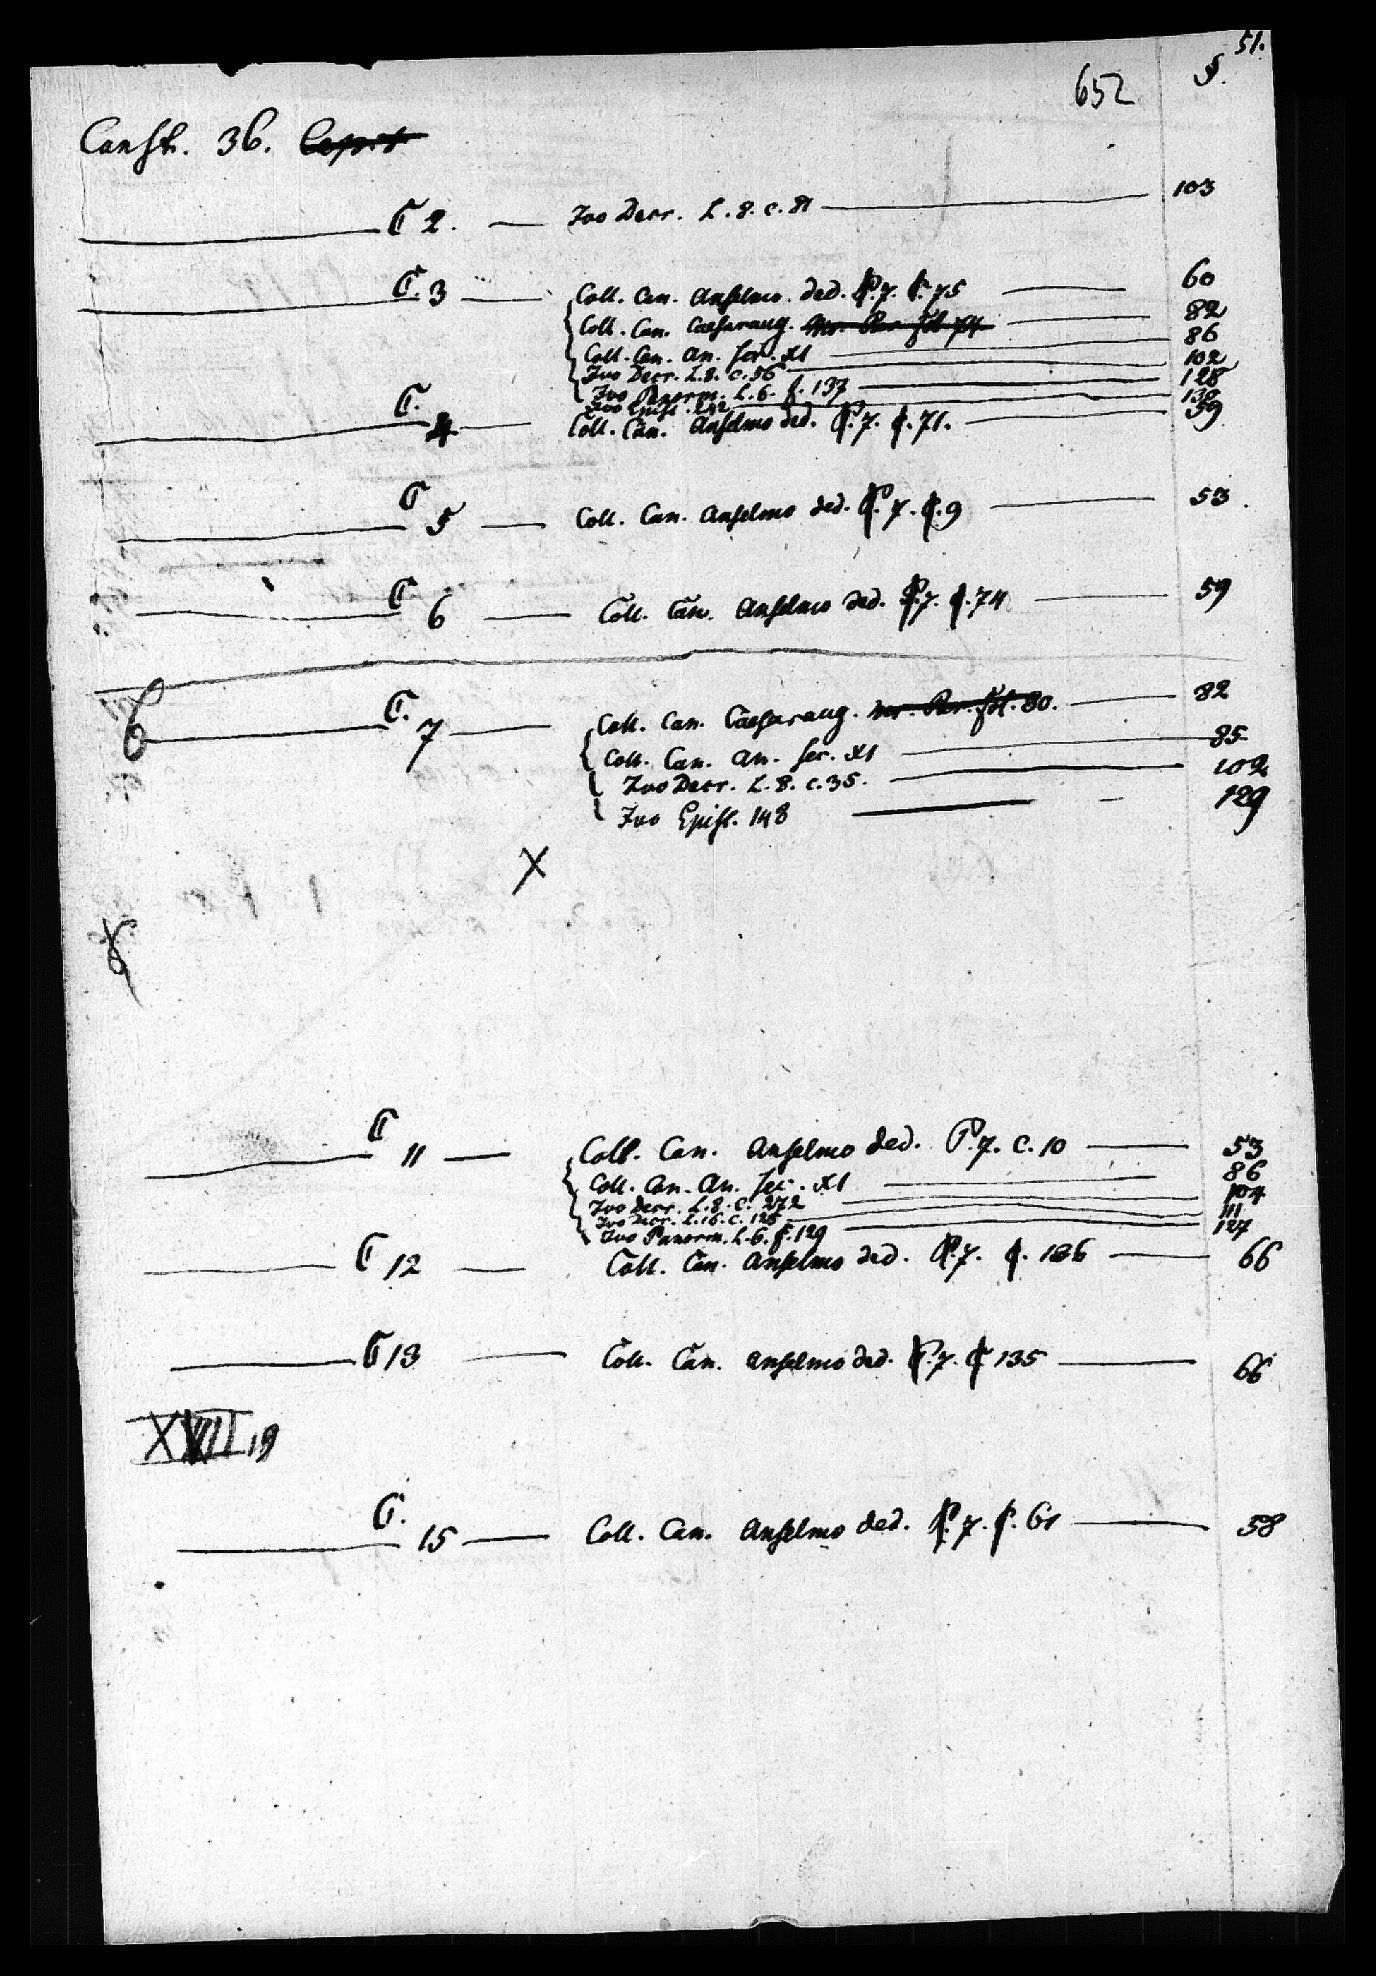 51.
652 S.
Const. 36. Capit
C 2. — Ivo Decr. L. 8. c. 81 — 103
C. 3 — Coll. Can. Anselmo. ded. P. 7. c. 75 — 60
Coll. Can. Caesaraug. — 82
Coll. Can. An. sec. XI — 86
Ivo Decr. L. 8. c. 36 — 102
Ivo Panorm. L. 6. c. 137 — 128
Ivo Epist. 242 — 130
C. 4 — Coll. Can. Anselmo ded. P. 7. c. 71. — 59
C 5 — Coll. Can. Anselmo ded. P. 7. c. 9 — 53
C 6 — Coll. Can. Anselmo ded. P. 7. c. 74 — 59
C. 7 — Coll. Can. Caesaraug. ms. Par. fol. 80. — 82
Coll. Can. An. sec. XI — 85
Ivo Decr. L. 8. c. 35. — 102
Ivo Epist. 148 — 129
X
C 11 — Coll. Can. Anselmo ded. P. 7. c. 10 — 53
Coll. Can. An. sec. XI — 86
Ivo Decr. L. 8. c. 272 — 104
Ivo Decr. L. 16. c. 125 — 111
Ivo Panorm. L. 6. c. 129 — 127
C 12 — Coll. Can. Anselmo ded. P. 7. c. 136 — 66
C 13 — Coll. Can. Anselmo ded. P. 7. c 135 — 66
19
C. 15 — Coll. Can. Anselmo ded. P. 7. c. 61 — 58